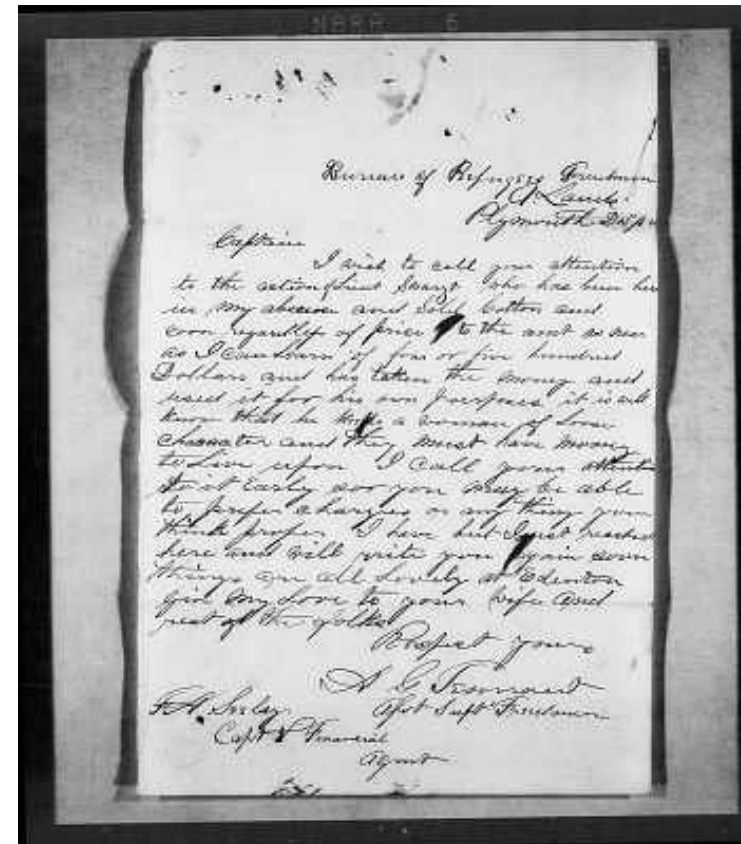 NARA 6
Bureau of Refugees Freedmen
& Lands
Plymouth
Captain
I wish to call your attention
to the action of Lieut who has been here
in my absence and Sold Cotton and
corn regardless of price to the amt as near
as I can learn of four or five hundred
Dollars and has taken the money and
used it for his own purposes it is well
know that he a woman of loose
character and they must have money
to Live upon I call your attention
to it Early so you may be able
to prefer charges or any thing you
think proper I have but Just reached
here and will write you again soon
things are all Lovely at Edenton
give My Love to your Wife and
rest of the folks
Respect yours
A G
Asst Supt Freedmen
F. A. Seely
Capt & Financial
Agent